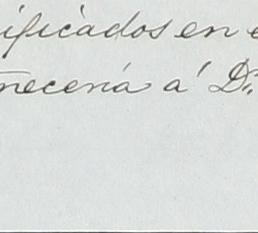 ificados en e
necería á Dn.